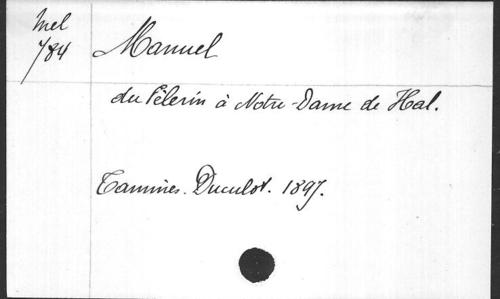 Mel
784
Manuel
du Pèlerin à Notre-Dame de Hal.
Tamines. Duculot. 1897.